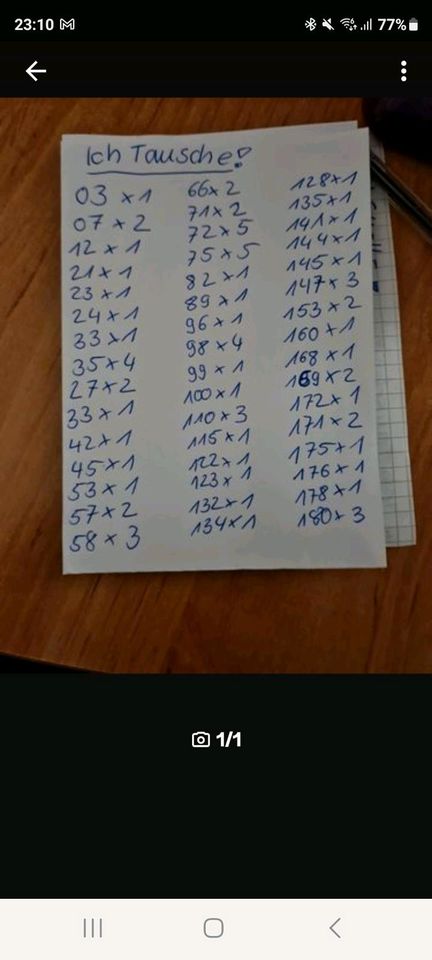 23:10
77%
Ich Tausche!
03 x 1
07 x 2
12 x 1
21 x 1
23 x 1
24 x 1
33 x 1
35 x 4
27 x 2
33 x 1
42 x 1
45 x 1
53 x 1
57 x 2
58 x 3
66 x 2
71 x 2
72 x 5
75 x 5
82 x 1
89 x 1
96 x 1
98 x 4
99 x 1
100 x 1
110 x 3
115 x 1
122 x 1
123 x 1
132 x 1
134 x 1
128 x 1
135 x 1
141 x 1
144 x 1
145 x 1
147 x 3
153 x 2
160 x 1
168 x 1
169 x 2
172 x 1
171 x 2
175 x 1
176 x 1
178 x 1
180 x 3
1/1